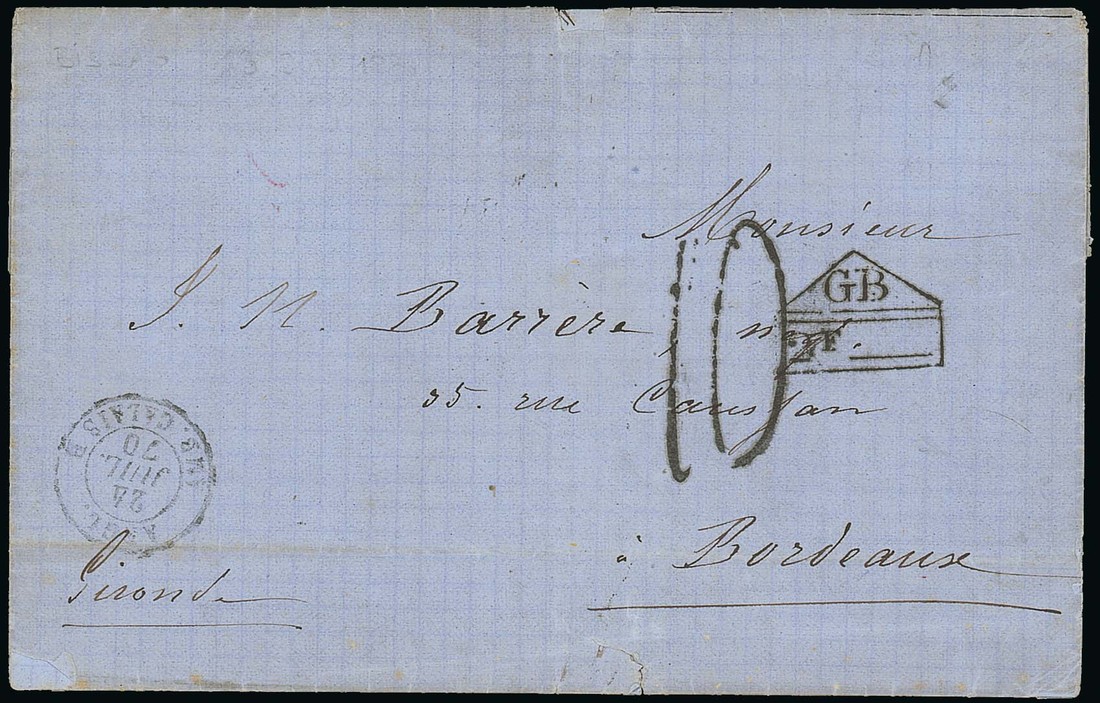 Monsieur
J. N. Barrère, négt.
35. rue Caussan
à Bordeaux
Gironde
10
GB
2F
ANGL. AMB. CALAIS B
24
JUIL.
70